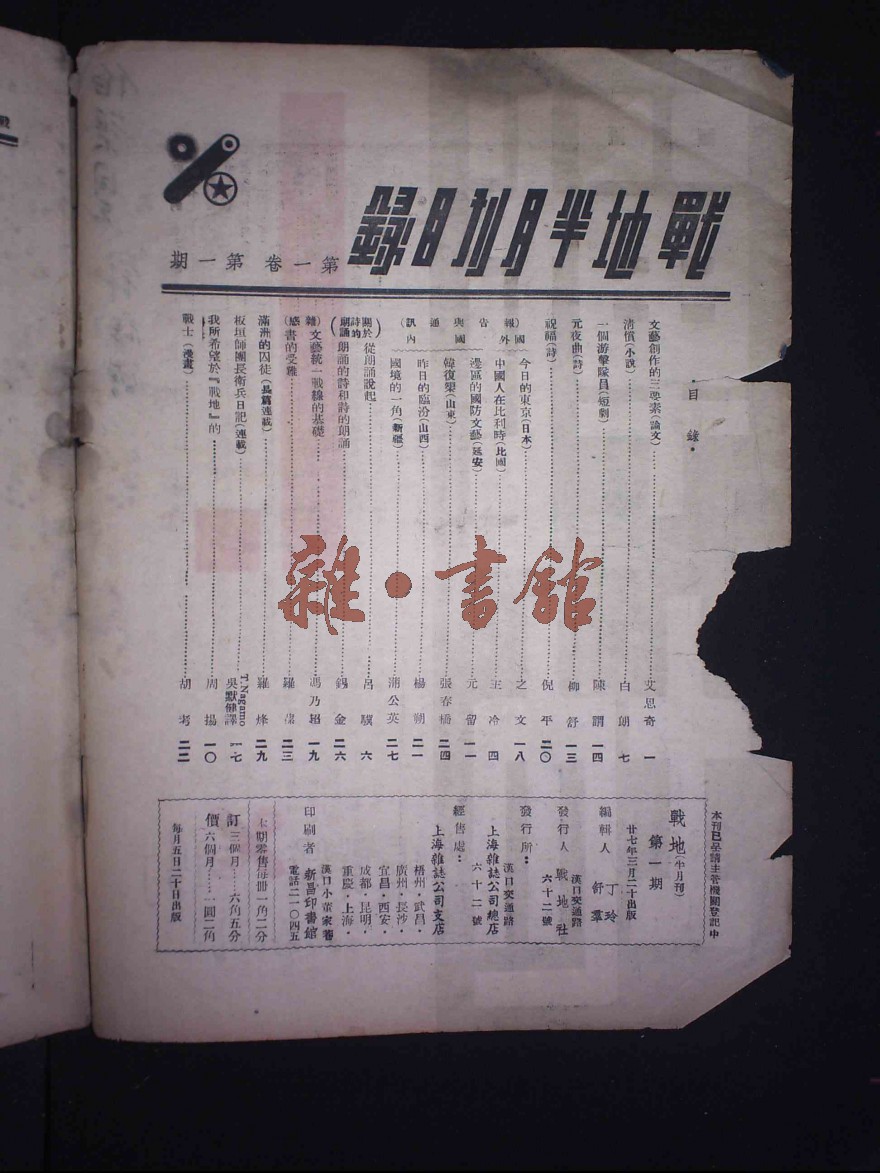 戰地半月刊目錄
第一卷 第一期
·目錄·
文藝創作的三要素(論文) 艾思奇 一
清償(小說) 白朗 七
一個游擊隊員(短劇) 陳謂 一四
元夜曲(詩) 柳舒 一三
祝福(詩) 倪平 二〇
報告與通訊
國外
今日的東京(日本) 之文 一八
中國人在比利時(比國) 王冷 四
國內
邊區的國防文藝(延安) 元留 一一
韓復榘(山東) 張春橋 二四
昨日的臨汾(山西) 楊朔 二一
國境的一角(新疆) 浦公英 二七
關於詩的朗誦
從朗誦說起 呂驥 六
朗誦的詩和詩的朗誦 錫金 二六
雜感
文藝統一戰線的基礎 馮乃超 一九
書的受難 羅蓀 二三
滿洲的囚徒(長篇連載) 羅烽 二九
板垣師團長衛兵日記(連載) T.Nagamo 吳默健譯 一七
我所希望於『戰地』的 周揚 一〇
戰士(漫畫) 胡考 二二
本刊已呈請主管機關登記中
戰地(半月刊)
第一期
廿七年三月二十出版
編輯人 丁玲 舒羣
發行人 戰地社
漢口交通路六十二號
發行所:
上海雜誌公司總店
漢口交通路六十二號
經售處:
上海雜誌公司支店
梧州·武昌·
廣州·長沙·
宜昌·西安·
成都·昆明·
重慶·上海·
印刷者 新昌印書館
漢口小董家巷
電話二一〇四五
本期零售每冊一角二分
訂價
三個月……六角五分
六個月……一圓二角
每月五日二十日出版
雜·書館